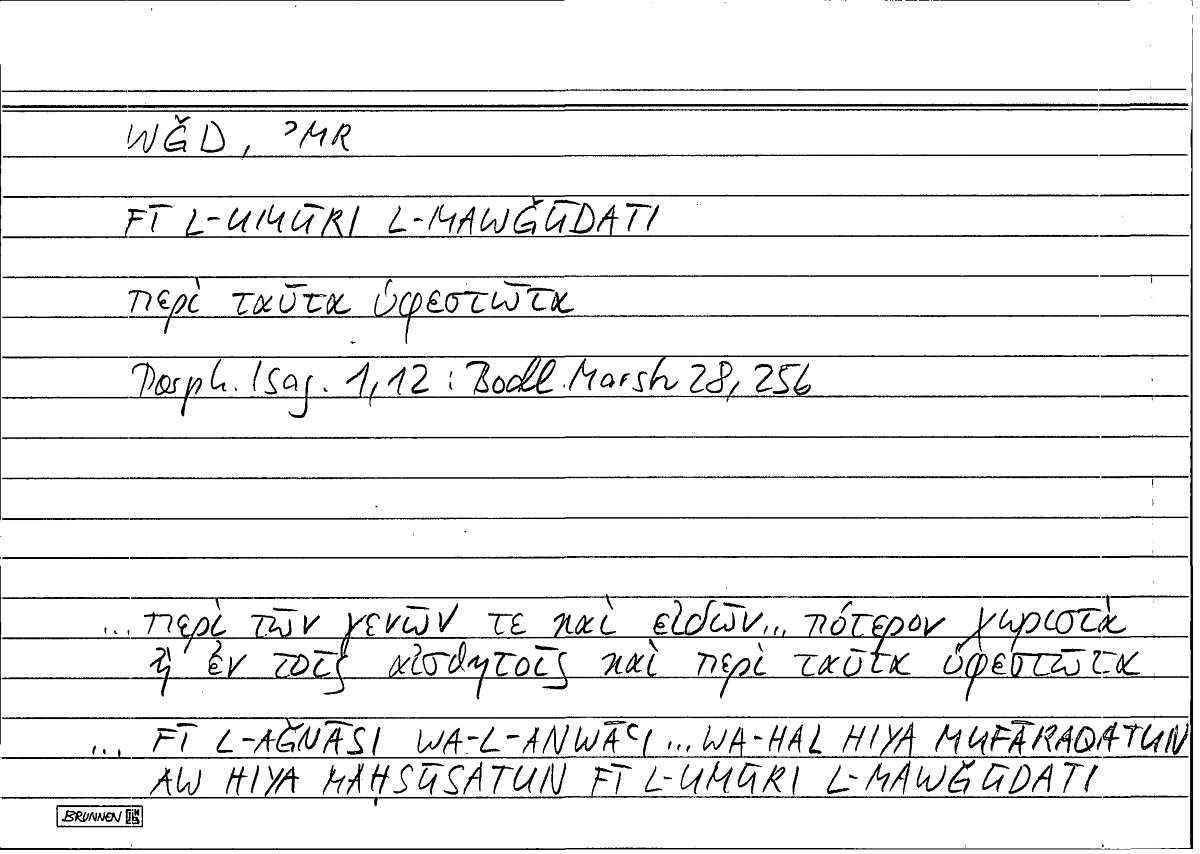 WǦD, ʾMR
FĪ L-UMŪRI L-MAWǦŪDATI
περὶ ταῦτα ὑφεστῶτα
Porph. Isag. 1,12 : Bodl. Marsh 28, 256
... περὶ τῶν γενῶν τε καὶ εἰδῶν... πότερον χωριστὰ
ἢ ἐν τοῖς αἰσθητοῖς καὶ περὶ ταῦτα ὑφεστῶτα
... FĪ L-AǦNĀSI WA-L-ANWĀʿI ... WA-HAL HIYA MUFĀRAQATUN
AW HIYA MAḤSŪSATUN FĪ L-UMŪRI L-MAWǦŪDATI
BRUNNEN